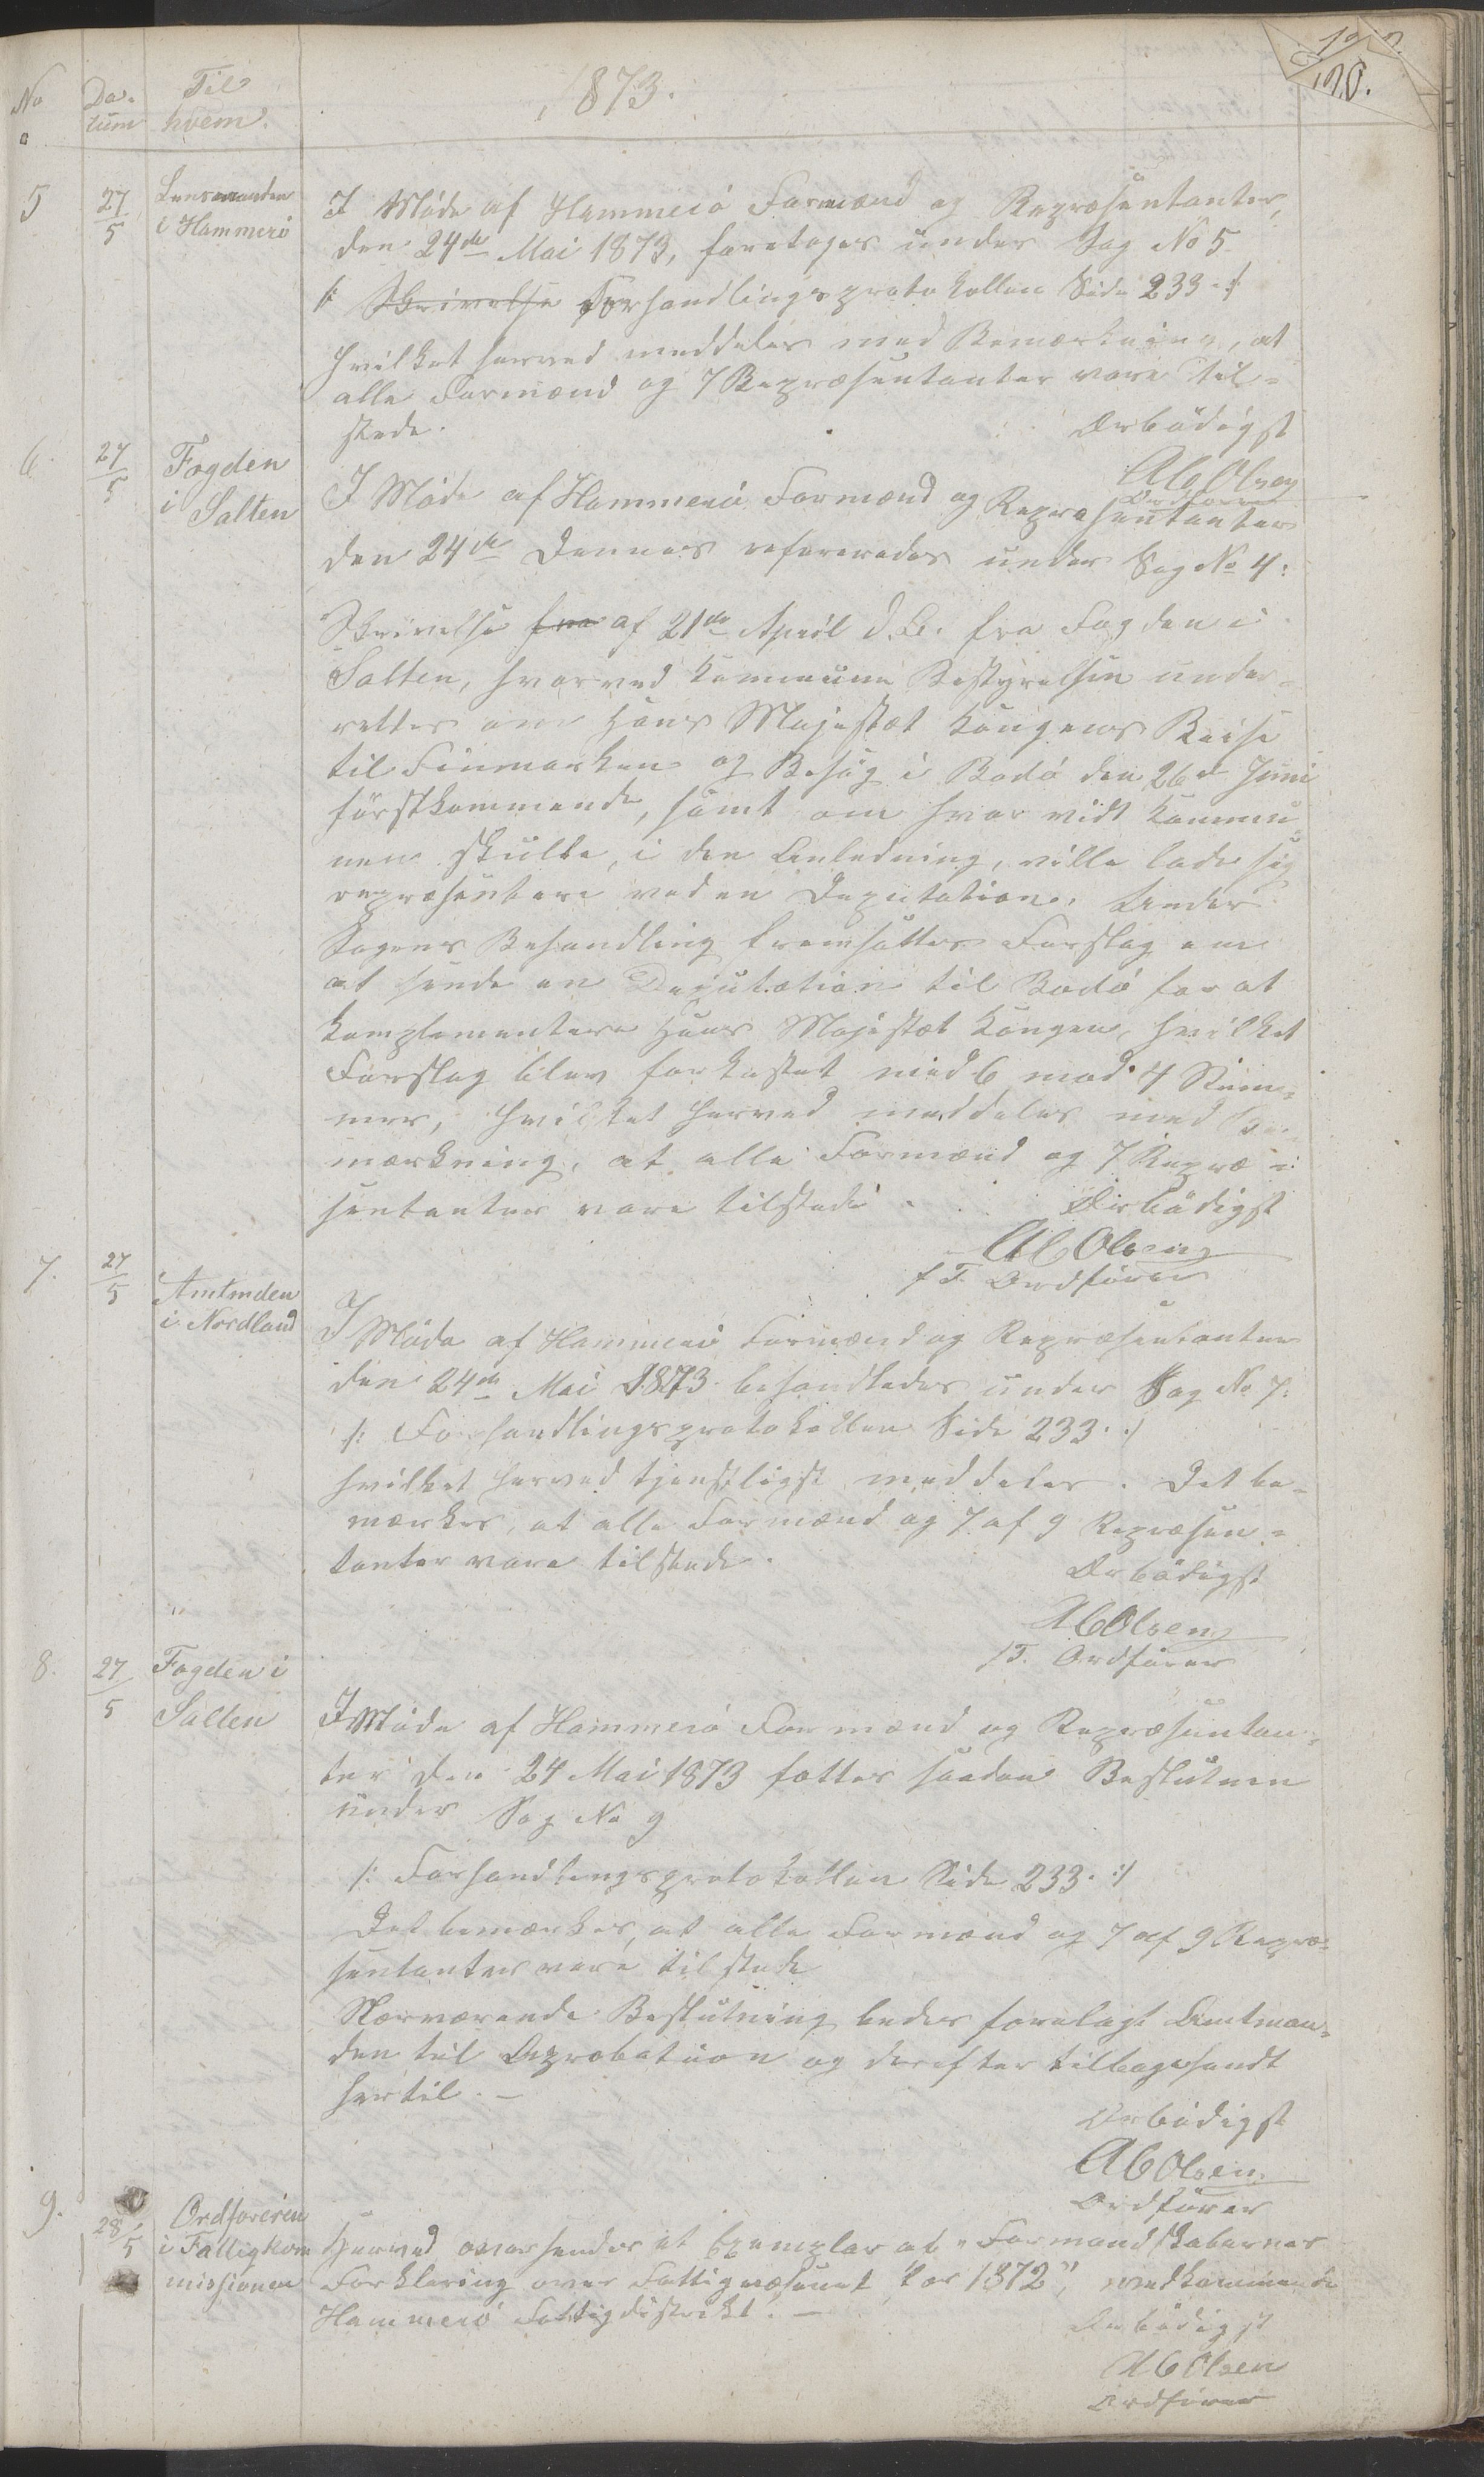 No
Da-
tum
Til
hvem.
1873.
120.
5
27/5
Lensmanden
i Hammerö
I Möde af Hammerö Formænd og Repræsentanter,
den 24de Mai 1873, foretoges under Sag No 5
/: Skrivelse Forhandlingsprotokollen Side 233 :/
hvilket herved meddeles med Bemærkning, at
alle Formænd og 7 Repræsentanter vare til-
stede.
Ærbödigst
A C Olsen
Ordförer
6.
27/5
Fogden
i Salten
I Möde af Hammerö Formænd og Repræsentanter
den 24de Dennes refereredes under Sag No 4:
Skrivelse fra af 21de April d. A. fra Fogden i
Salten, hvorved Kommune Bestyrelsen under-
rettes om Hans Majestæt Kongens Reise
til Finmarken og Besög i Bodö den 26de Juni
förstkommende, samt om hvor vidt Kommu-
nen skulde, i den Anledning, ville lade sig
repræsentere ved en Deputation. Under
Sagens Behandling fremsattes Forslag om
at sende en Deputation til Bodö for at
komplementere Hans Majestæt Kongen, hvilket
Forslag blev forkastet med 6 mod 4 Stem-
mer, hvilket herved meddeles med Be-
mærkning, at alle Formænd og 7 Repræ-
sentanter vare tilstede.
Ærbödigst
A C Olsen
p. T. Ordförer
7.
27/5
Amtmden
i Nordland
I Möde af Hammerö Formænd og Repræsentanter
den 24de Mai 1873 behandledes under Sag No 7:
/: Forhandlingsprotokollen Side 233. :/
hvilket herved tjenstligst meddeles. Det be-
mærkes, at alle Formænd og 7 af 9 Repræsen-
tanter vare tilstede.
Ærbödigst
A C Olsen
p T. Ordförer
8.
27/5
Fogden i
Salten
I Möde af Hammerö Formænd og Repræsentan-
ter den 24 Mai 1873 fattes saadan Beslutnin
under Sag No 9
/: Forhandlingsprotokollen Side 233. :/
Det bemærkes, at alle Formænd og 7 af 9 Repræ-
sentanter vare tilstede
Nærværende Beslutning bedes forelagt Amtman-
den til Approbation og derefter tilbagesendt
hertil. —
Ærbödigst
A C Olsen
Ordförer
9.
28/5
Ordföreren
i Fattigkom
missionen
Herved oversendes et Exemplar af "Formandskabernes
Forklaring over Fattigvæsenet for 1872", vedkommende
Hammerö Fattigdistrikt. —
Ærbödigst
A C Olsen
Ordförer